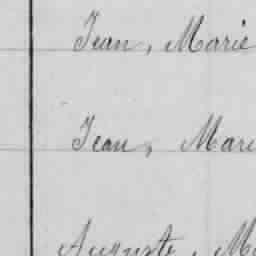 Jean, Marie
Jean, Mari
Auguste, M